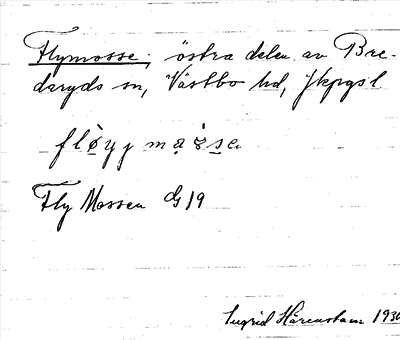 Flymosse, östra delen av Bre-
daryds sn, Västbo hd, Jkpgs l
fløyy ma
Fly Mossen G 19
Ingrid Härenstam 1930